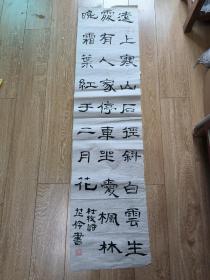 遠上寒山石徑斜白雲生
處有人家停車坐愛楓林
晚霜葉紅于二月花
杜牧詩
書